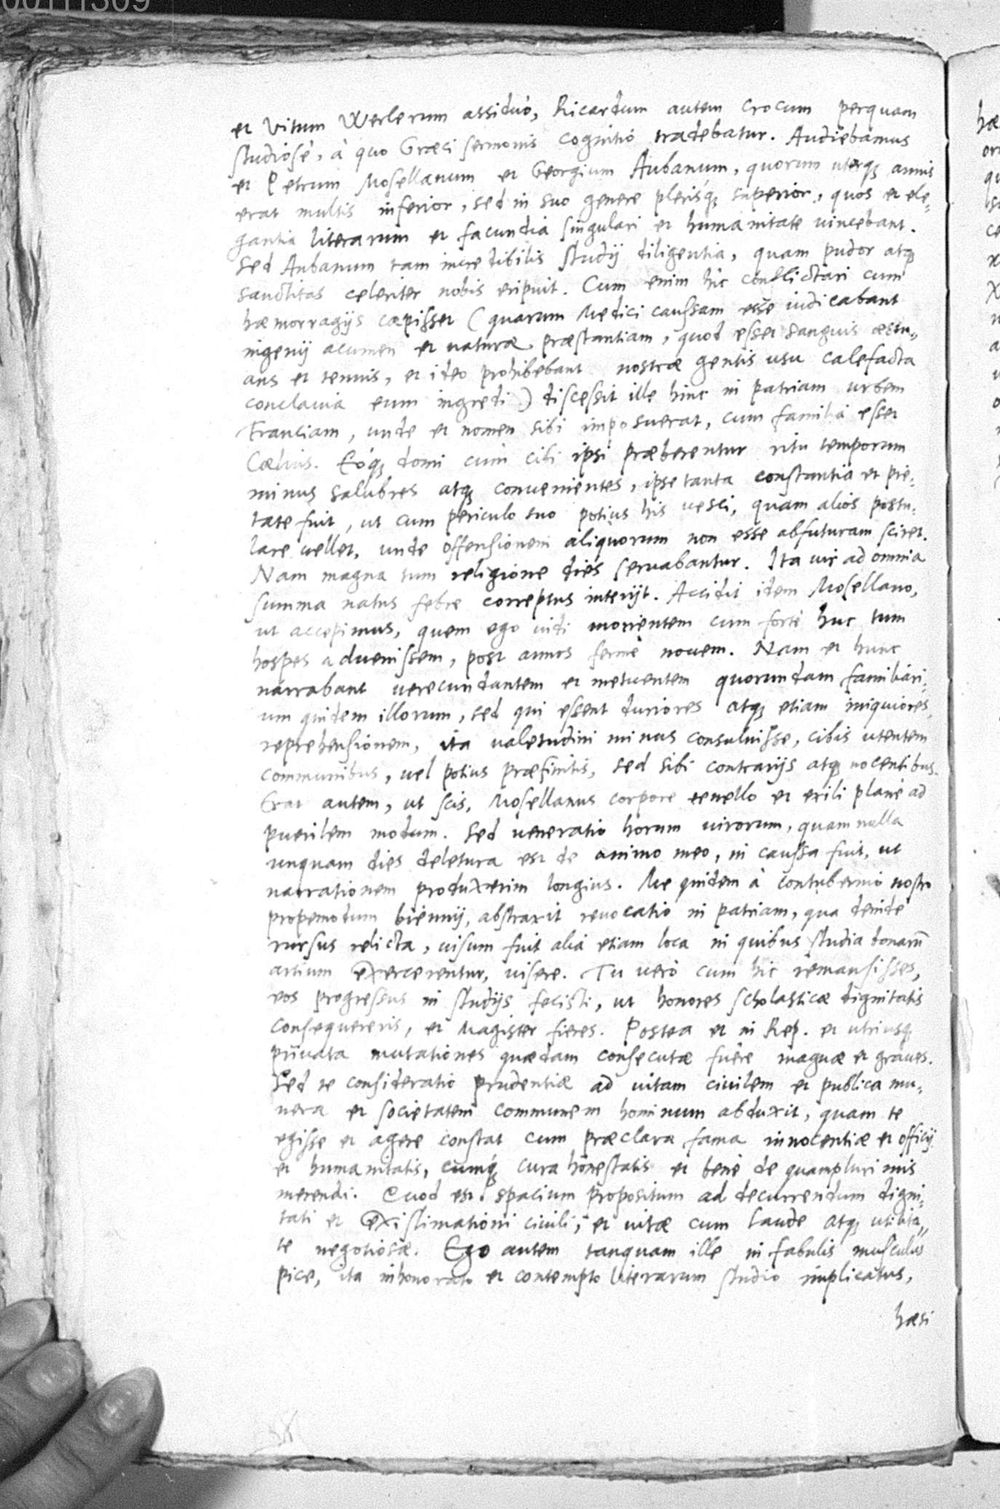 et Vitum Werlerum assiduò, Ricardum autem Crocum perquam
studiosè, à quo Græci sermonis cognitio tradebatur. Audiebamus
et Petrum Mosellanum et Georgium Aubanum, quorum uterq; annis
erat multis inferior, sed in suo genere plerisq; superior, quos et ele-
gantia literarum et facundia singulari et humanitate vincebant.
Sed Aubanum tam incredibilis studij diligentia, quam pudor atq;
sanctitas celeriter nobis eripuit. Cum enim hic conflictari cum
hæmorragijs cæpisset (quarum Medici caussam esse iudicabant
ingenij acumen et naturæ præstantiam, quod esset sanguis æstu-
ans et tenuis, et ideo prohibebant nostræ gentis usu calefacta
conclauia eum ingredi) discessit ille hinc in patriam urbem
Franciam, unde et nomen sibi imposuerat, cum familia esset
Cælius. Eóq; domi cum cibi ipsi præberentur ritu temporum
minus salubres atq; convenientes, ipse tanta constantia et pie-
tate fuit, ut cum periculo suo potius his vesci, quam alios postu-
lare vellet, unde offensionem aliquorum non esse abfuturam sciret.
Nam magna tum religione dies servabantur. Ita vir ad omnia
summa natus febre correptus interijt. Accidit idem Mosellano,
ut accepimus, quem ego vidi morientem cum fortè huc tum
hospes advenissem, post annos fermè novem. Nam et hunc
narrabant verecundantem et metuentem quorundam familiari-
um quidem illorum, sed qui essent duriores atq; etiam iniquiores,
reprehensionem, ita valetudini minus consuluisse, cibis utentem
communibus, vel potius præfinitis, sed sibi contrarijs atq; nocentibus.
Erat autem, ut scis, Mosellanus corpore tenello et exili planè ad
puerilem modum. Sed veneratio horum virorum, quam nulla
unquam dies deletura est de animo meo, in caussa fuit, ut
narrationem produxerim longius. Me quidem à contubernio nostro
propemodum biennij, abstraxit revocatio in patriam, qua deinde
rursus relicta, visum fuit alia etiam loca in quibus studia bonarũ
artium exercerentur, visere. Tu verò cum hic remansisses,
eos progressus in studijs fecisti, ut honores scholasticæ dignitatis
consequereris, et Magister fieres. Postea et in Rep. et utriusq;
privata mutationes quædam consecutæ fuêre magnæ et graves.
Sed te consideratio prudentiæ ad vitam civilem et publica mu-
nera et societatem communem hominum abduxit, quam te
egisse et agere constat cum præclara fama innocentiæ et officij
et humanitatis, cumq; cura honestatis et benè de quamplurimis
merendi. Quod est spacium propositum ad decurrendum digni-
tati et existimationi civili, et vitæ cum laude atq; utilita-
te negotiosæ. Ego autem tanquam ille in fabulis musculus
pice, ita inhonorato et contempto literarum studio implicatus,
hæsi